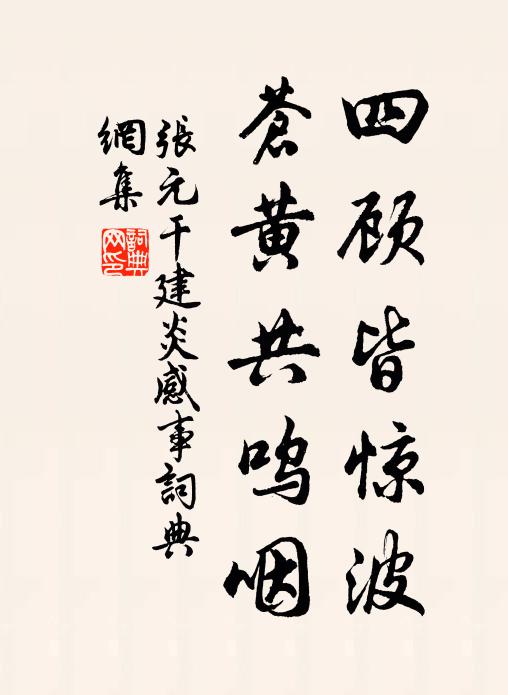 四顾皆惊波
蒼黄共呜咽
張元干建炎感事詞典
網集
詞典
网印